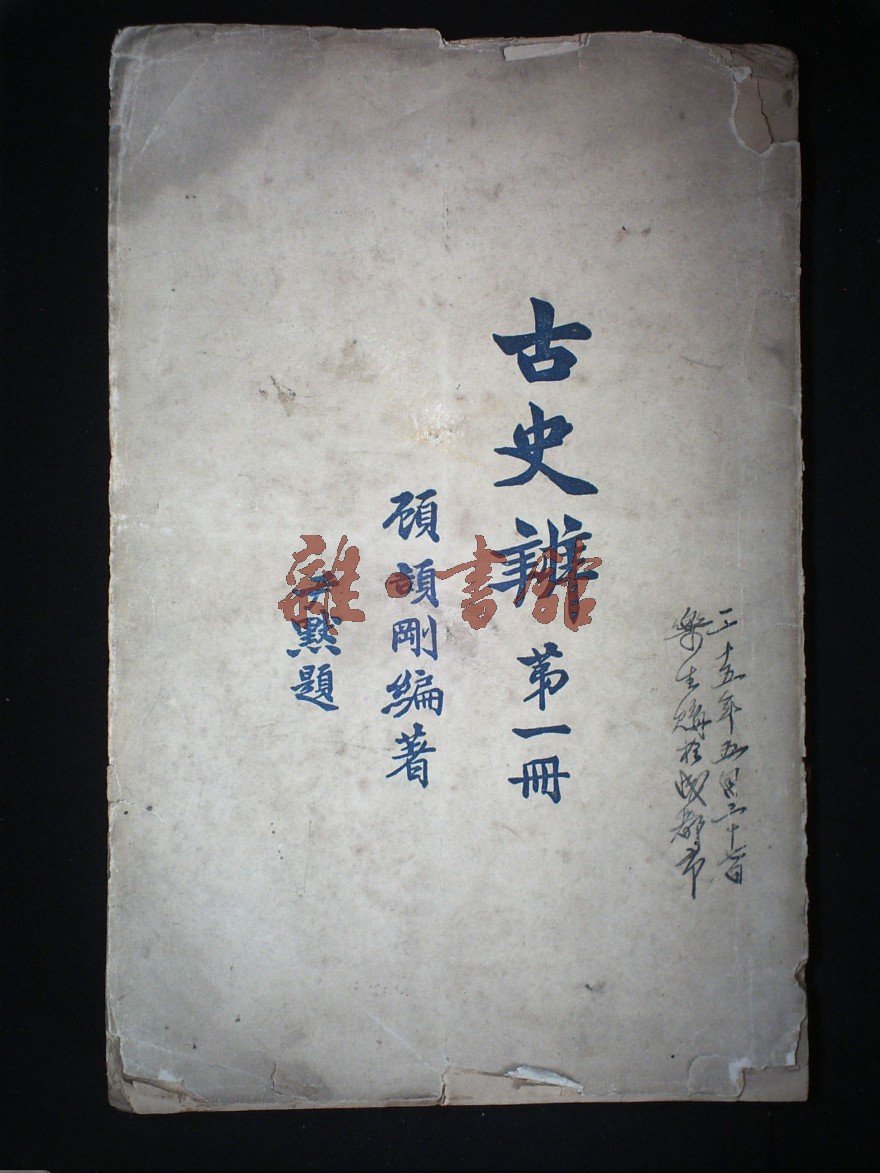 三十五年五月二十七日
樂生購於成都市
古史辨 第一冊
顧頡剛編著
尹默題
雜·書館